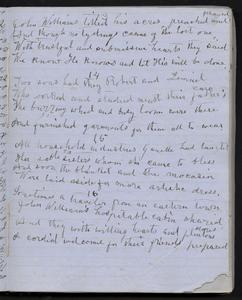 John Williams tilled his acres, preached and
And though no tidings came of the lost one
With trustful and submissive hearts they said
He knows He knows and let His will be done
14
Two sons had they Robert and
who worked and studied neath their father's care
The buzzing wheel and busy loom were there
And furnished garments for them all to wear
15
All household industries had taught
sisters whom she came to bless
And soon the blanket and the moccasin
Were laid aside for more artistic dress.
16
Sometimes a traveler from an eastern town
John Williams's hospitable cabin shared
And they with willing hearts and
A cordial welcome for their friends prepared